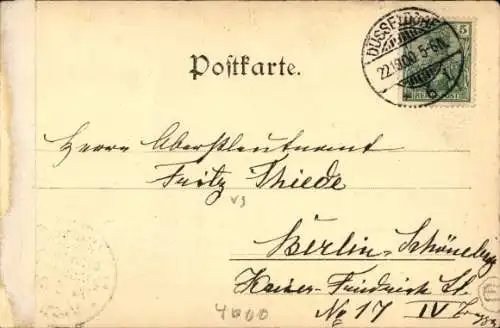 DÜSSELDORF
5
22.10.00 5-6N
REICHSPOST
Postkarte.
Herrn Oberstleutnant
Fritz Thiede
V3
Berlin-Schöneberg
Kaiser-Friedrich St.
No 17 IV
4000